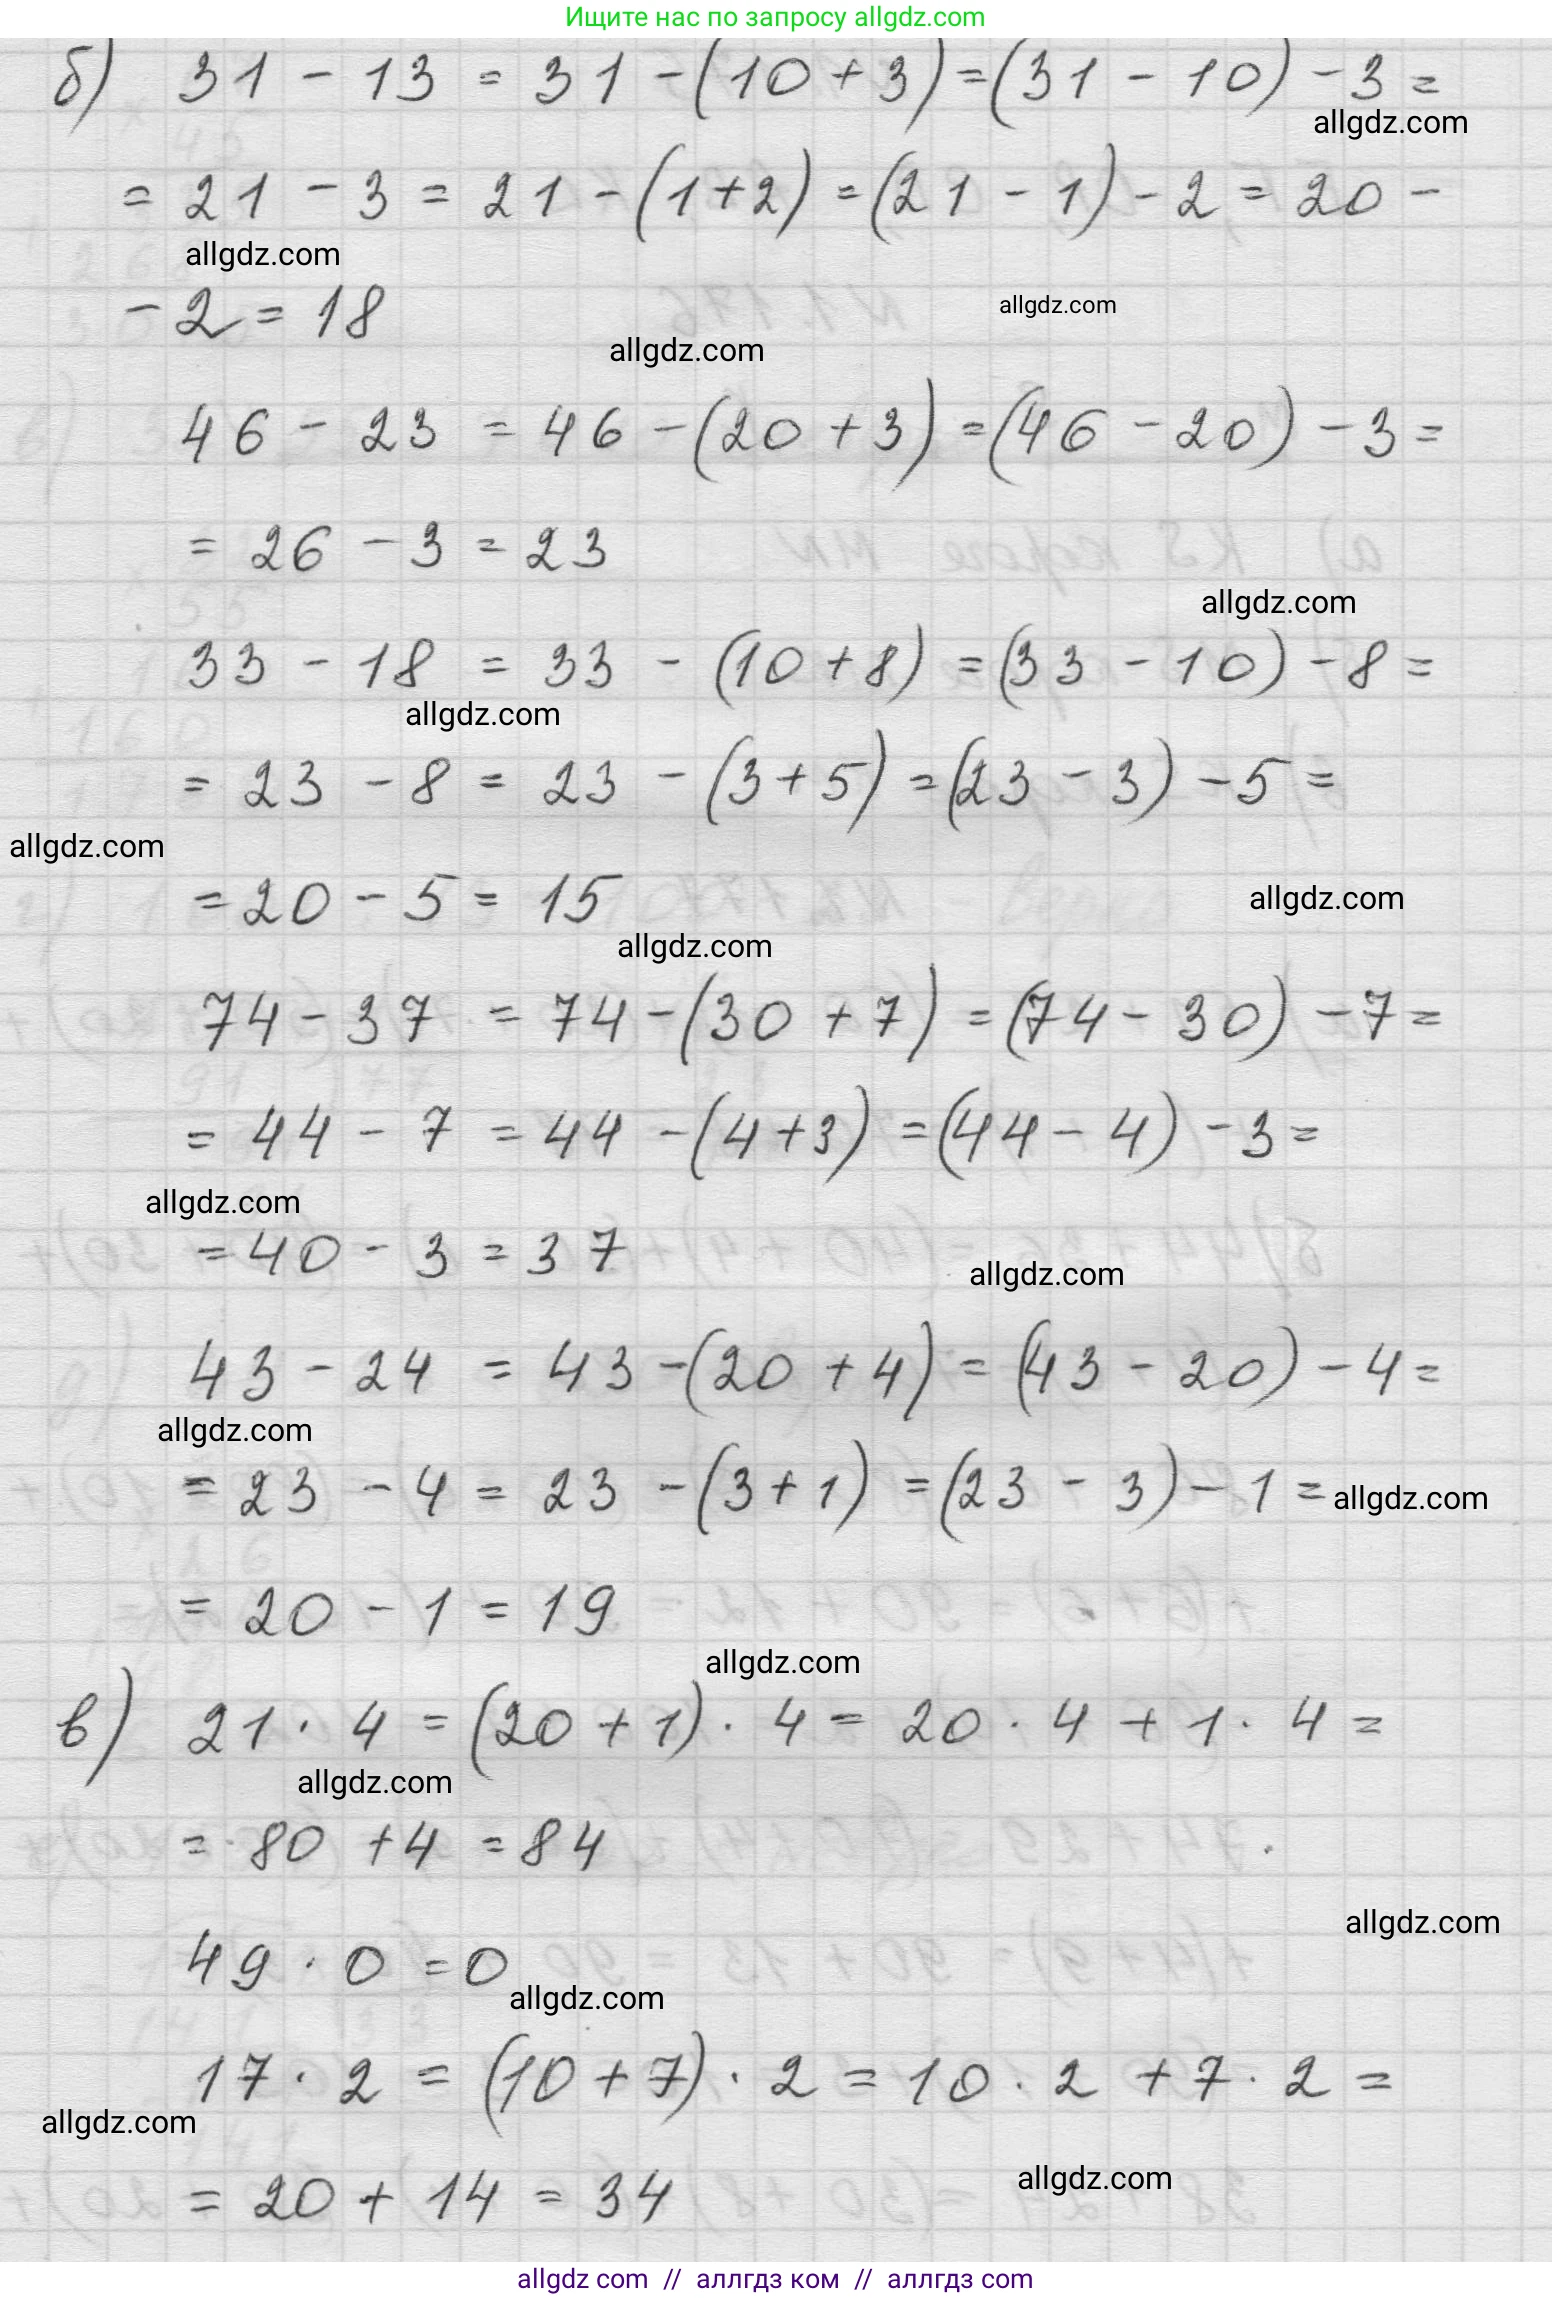 Ищите нас по запросу allgdz.com
б) 31 - 13 = 31 - (10 + 3) = (31 - 10) - 3 =
allgdz.com
= 21 - 3 = 21 - (1 + 2) = (21 - 1) - 2 = 20 -
allgdz.com
- 2 = 18
allgdz.com
allgdz.com
46 - 23 = 46 - (20 + 3) = (46 - 20) - 3 =
= 26 - 3 = 23
allgdz.com
33 - 18 = 33 - (10 + 8) = (33 - 10) - 8 =
allgdz.com
= 23 - 8 = 23 - (3 + 5) = (23 - 3) - 5 =
allgdz.com
= 20 - 5 = 15
allgdz.com
allgdz.com
74 - 37 = 74 - (30 + 7) = (74 - 30) - 7 =
= 44 - 7 = 44 - (4 + 3) = (44 - 4) - 3 =
allgdz.com
= 40 - 3 = 37
allgdz.com
43 - 24 = 43 - (20 + 4) = (43 - 20) - 4 =
allgdz.com
= 23 - 4 = 23 - (3 + 1) = (23 - 3) - 1 =
allgdz.com
= 20 - 1 = 19
allgdz.com
в) 21 · 4 = (20 + 1) · 4 = 20 · 4 + 1 · 4 =
allgdz.com
= 80 + 4 = 84
allgdz.com
49 · 0 = 0
allgdz.com
17 · 2 = (10 + 7) · 2 = 10 · 2 + 7 · 2 =
allgdz.com
allgdz.com
= 20 + 14 = 34
allgdz com // аллгдз ком // аллгдз com